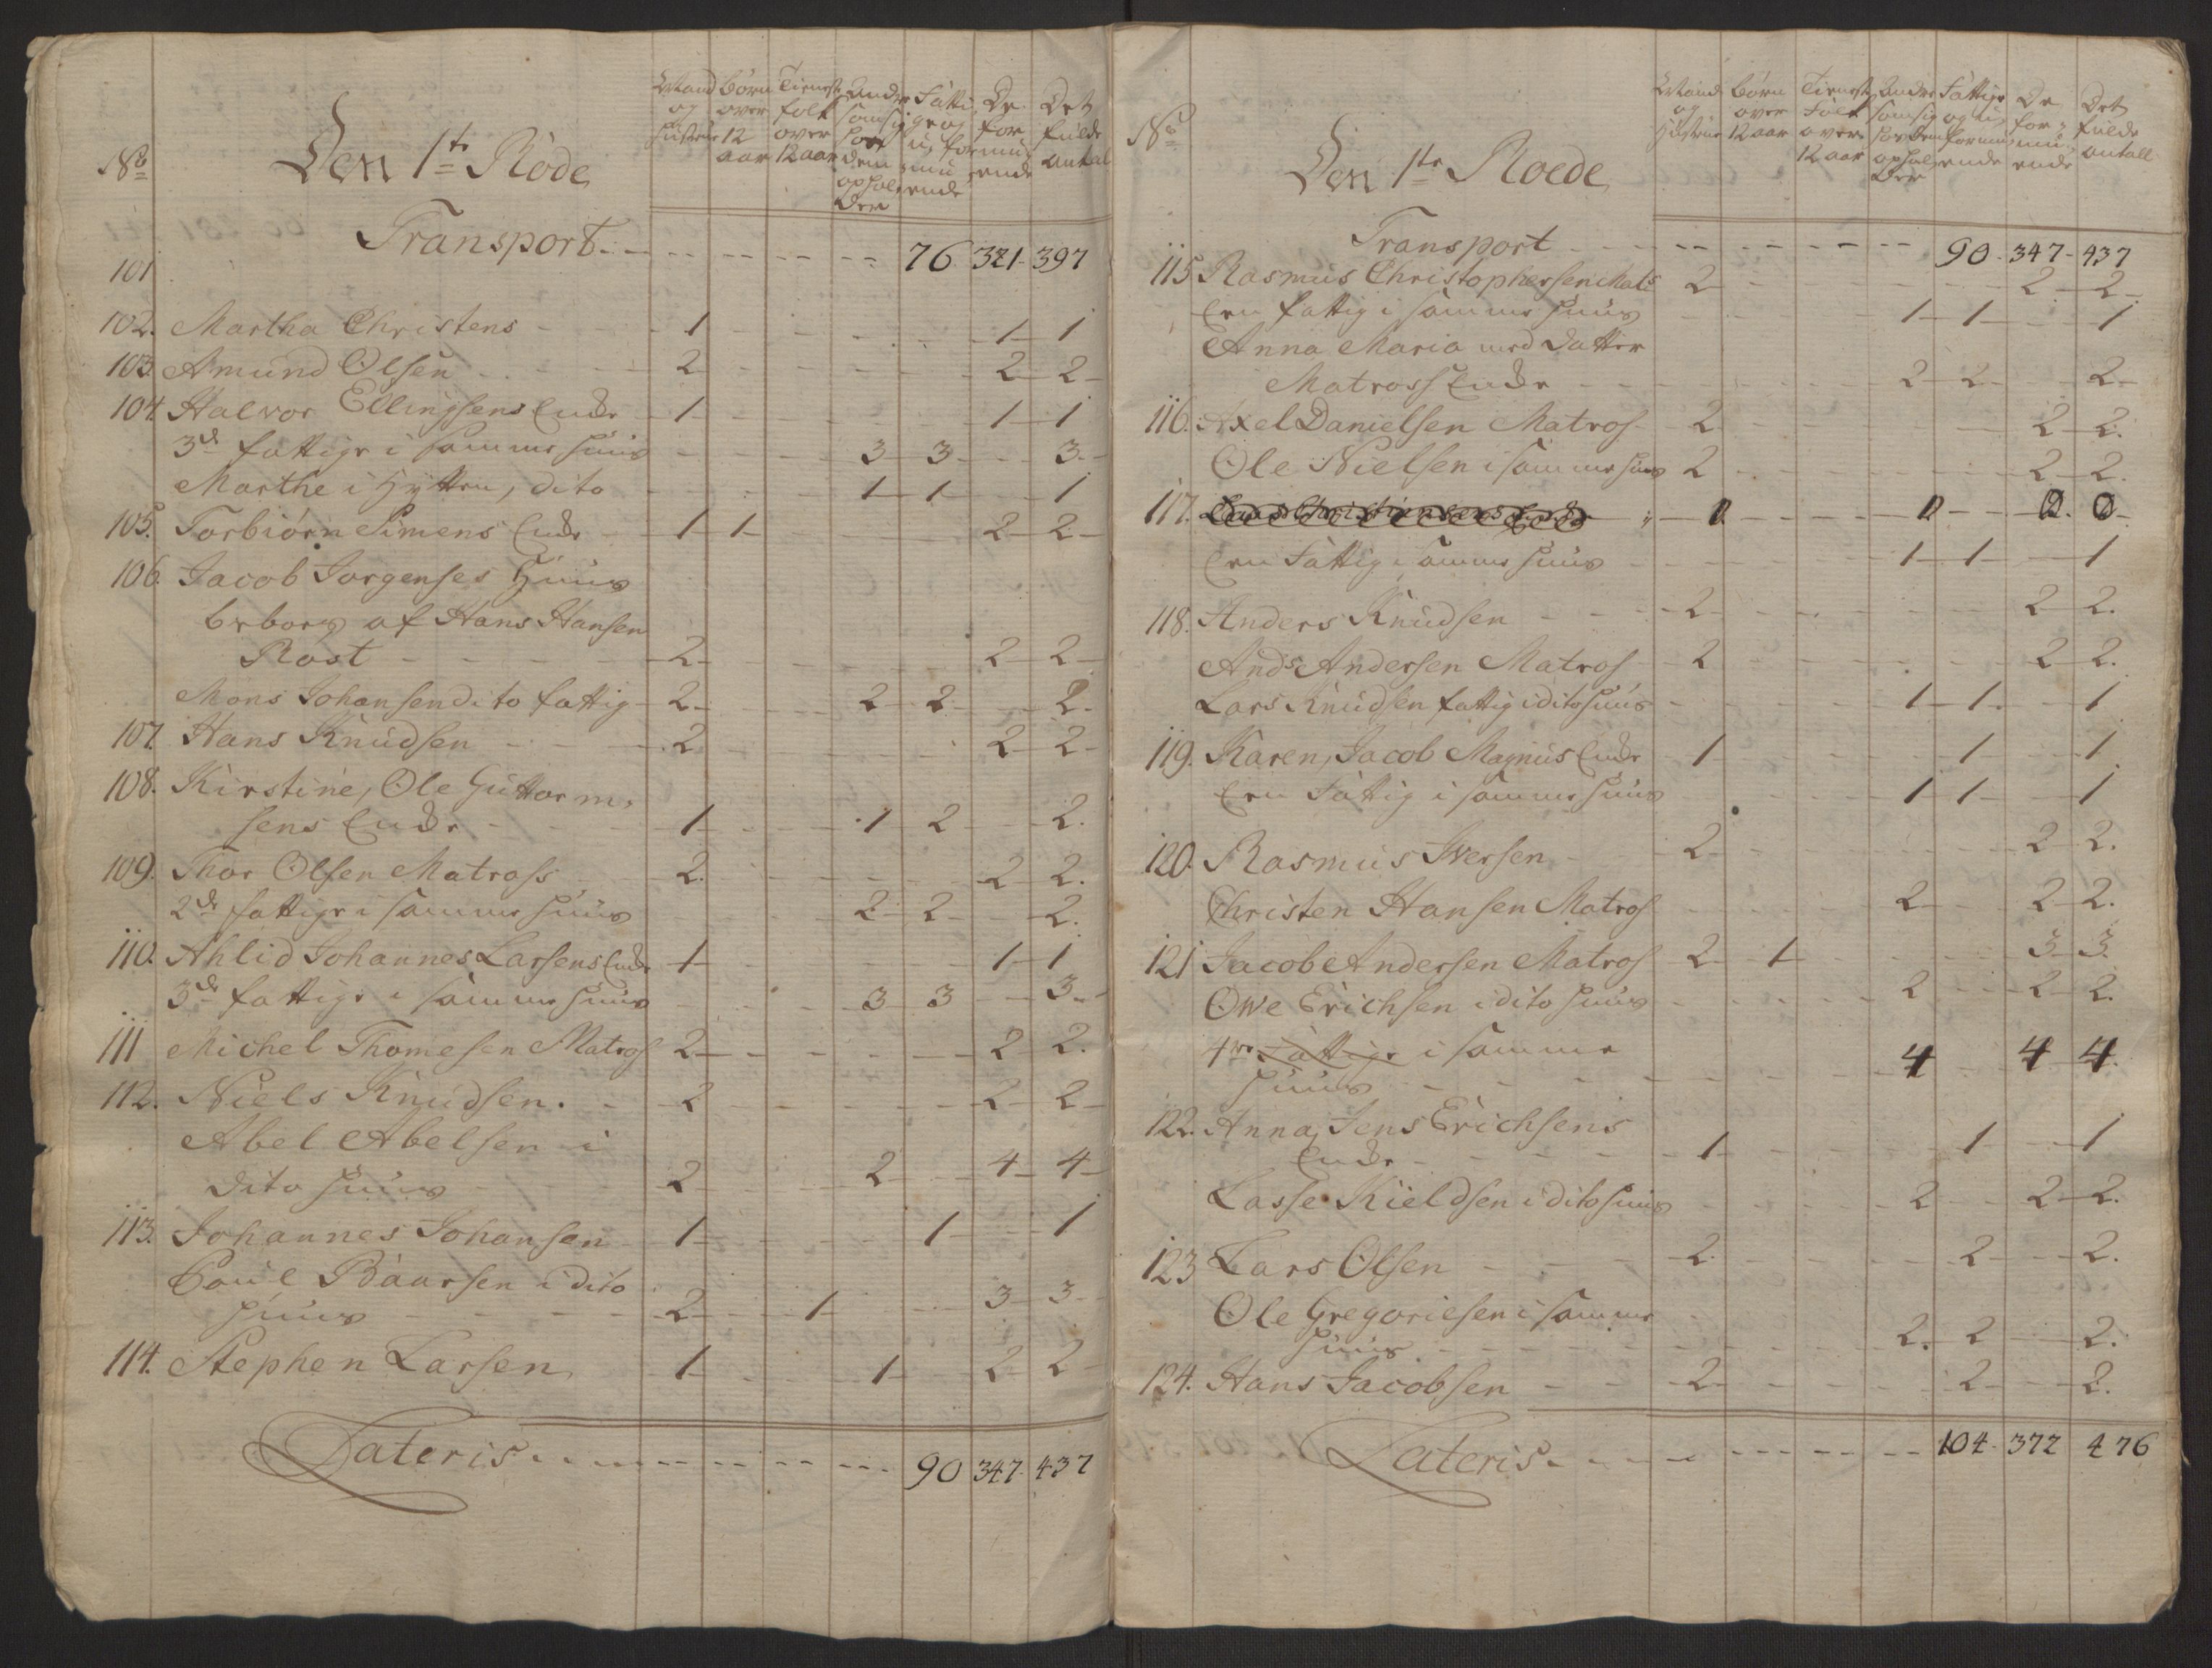 No
Den 1te Rode
Mand og Hustrue
Børn over 12 aar
Tienestfolk over 12 aar
Andre som sig hos dem opholder
Fattige og uformuende
De formuende
Det fulde antal
Transport 76 321 397
101
102. Martha Christens 1 1 1
103. Amund Olsen 2 2 2
104. Halvor Ellingsens Enke 1 1 1
3de fattige i samme huus 3 3 3
Marthe i Hytten, dito 1 1 1
105. Torbiørn Simens Enke 1 1 2 2
106. Jacob Jorgenses Huus
beboes af Hans Hansen
Rost 2 2 2
Mons Johansen dito fattig 2 2 2 2
107. Hans Knudsen 2 2 2
108. Kirstine, Ole Guttorm,
sens Enke 1 1 2 2
109. Thor Olsen Matross 2 2 2
2de fattige i samme huus 2 2 2
110. Ahlid Johannes Larsens Enke 1 1 1
3de fattige i samme huus 3 3 3
111 Michel Thomesen Matros 2 2 2
112. Niels Knudsen. 2 2 2
Abel Abelsen i
dito huus 2 2 4 4
113. Johannes Johansen 1 1 1
Poul Baarsen i dito
huus 2 1 3 3
114. Stephen Larsen 1 1 2 2
Lateris 90 347 437
No
Den 1te Roede
Mand og Hustrue
Børn over 12 aar
Tienest Folk over 12 aar
Andre som sig hos dem opholder
Fattige og uformuende
De formuende
Det fulde antall
Transport 90 347 437
115 Rasmus Christophersen Mats 2 2 2
Een fattig i samme huus 1 1 1
Anna Maria med datter
Matross Enke 2 2 2
116. Axel Danielsen Matros 2 2 2
Ole Nielsen i samme huus 2 2 2
117. 0 0 0 0
Een Fattig i samme huus 1 1 1
118. Anders Knudsen 2 2 2
Ands Andersen Matros 2 2 2
Lars Knudsen fattig i dito huus 1 1 1
119. Karen, Jacob Magnus Enke 1 1 1
Een Fattig i samme huus 1 1 1
120. Rasmus Iversen 2 2 2
Christen Hansen Matros 2 2 2
121 Jacob Andersen Matros 2 1 3 3
Owe Erichsen i dito huus 2 2 2
4re Fattige i samme
huus 4 4 4
122. Anna, Jens Erichsens
Enke 1 1 1
Lasse Kieldsen i dito huus 2 2 2
123 Lars Olsen 2 2 2
Ole Gregoriesen i samme
huus 2 2 2
124. Hans Jacobsen 2 2 2
Lateris 104 372 476